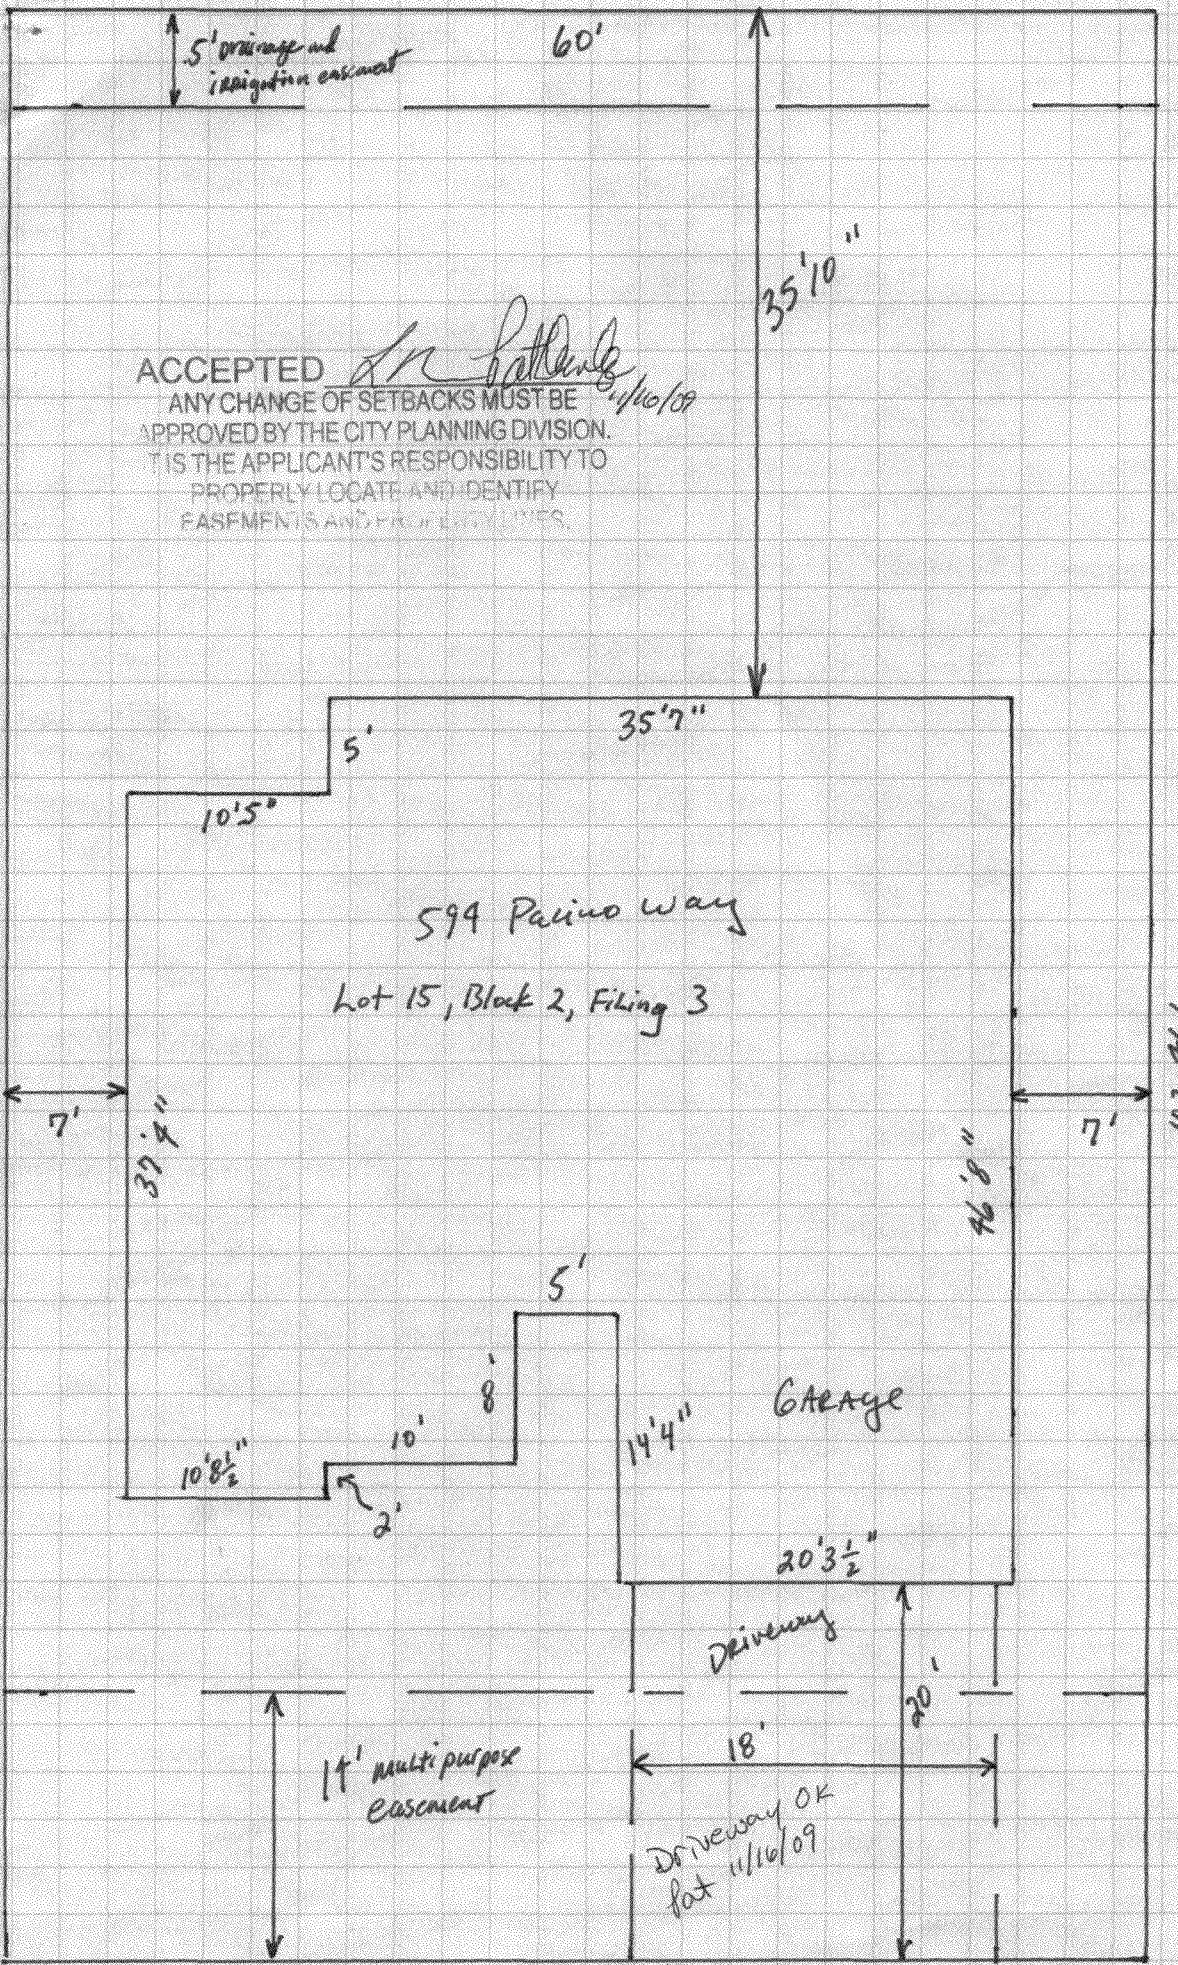 5' Drainage and
irrigation easement
60'
35'10"
ACCEPTED
11/16/09
ANY CHANGE OF SETBACKS MUST BE
APPROVED BY THE CITY PLANNING DIVISION.
T IS THE APPLICANT'S RESPONSIBILITY TO
PROPERLY LOCATE AND IDENTIFY
EASEMENTS AND PROPERTY LINES.
35'7"
5'
10'5"
594 Way
Lot 15, Block 2, Filing 3
7'
37'4"
46'8"
7'
5'
8'
10'
10'8½"
2'
14'4"
GARAGE
20'3½"
Driveway
20'
14' multipurpose
easement
18'
Driveway OK
Pat 11/16/09